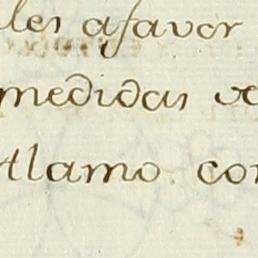 les afavor
medidas ve
Alamo con